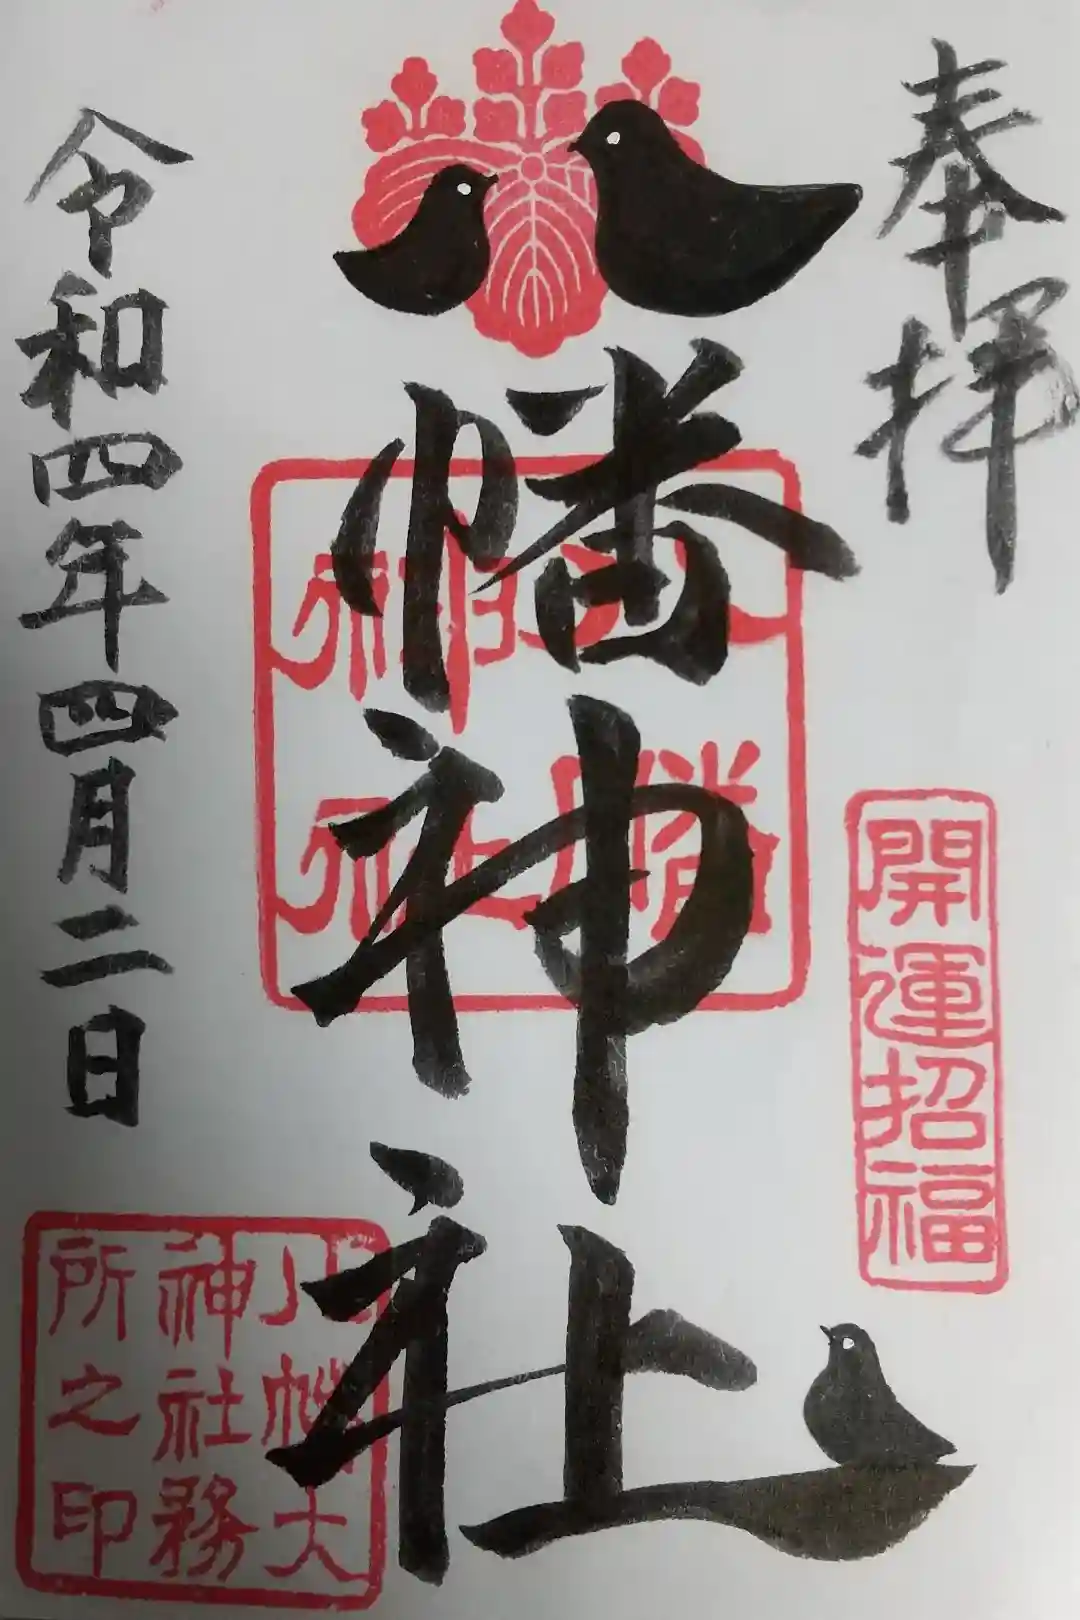 奉拝
開運招福
八幡神社
八幡神社
令和四年四月二日
八幡大
神社務
所之印